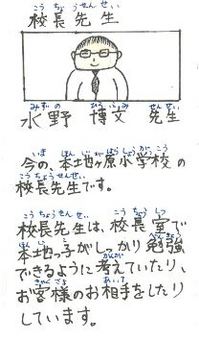 校長先生
水野 博文 先生
今の、本地ヶ原小学校の
校長先生です。
校長先生は、校長室で
本地っ子がしっかり勉強
できるように考えていたり、
お客様のお相手をしたり
しています。